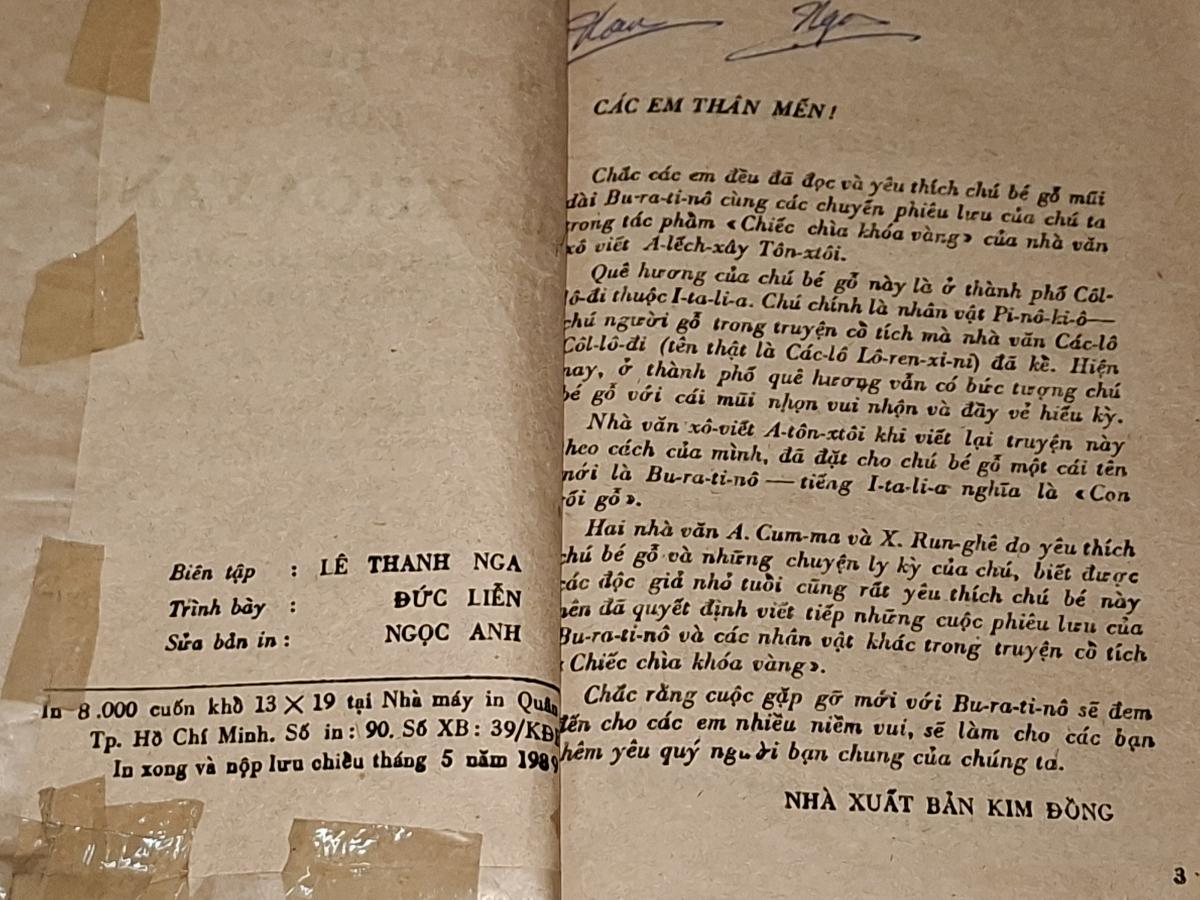 Biên tập : LÊ THANH NGA
Trình bày : ĐỨC LIỄN
Sửa bản in: NGỌC ANH
In 8.000 cuốn khổ 13 × 19 tại Nhà máy in Quân
Tp. Hồ Chí Minh. Số in: 90. Số XB: 39/KĐ
In xong và nộp lưu chiểu tháng 5 năm 1989
CÁC EM THÂN MẾN!
Chắc các em đều đã đọc và yêu thích chú bé gỗ mũi
dài Bu-ra-ti-nô cùng các chuyến phiêu lưu của chú ta
trong tác phẩm «Chiếc chìa khóa vàng» của nhà văn
xô viết A-lếch-xây Tôn-xtôi.
Quê hương của chú bé gỗ này là ở thành phố Côl-
lô-đi thuộc I-ta-li-a. Chú chính là nhân vật Pi-nô-ki-ô—
chú người gỗ trong truyện cổ tích mà nhà văn Các-lô
Côl-lô-đi (tên thật là Các-lô Lô-ren-xi-ni) đã kể. Hiện
nay, ở thành phố quê hương vẫn có bức tượng chú
bé gỗ với cái mũi nhọn vui nhộn và đầy vẻ hiếu kỳ.
Nhà văn xô-viết A-tôn-xtôi khi viết lại truyện này
theo cách của mình, đã đặt cho chú bé gỗ một cái tên
mới là Bu-ra-ti-nô — tiếng I-ta-li-a nghĩa là «Con
rối gỗ».
Hai nhà văn A. Cum-ma và X. Run-ghê do yêu thích
chú bé gỗ và những chuyện ly kỳ của chú, biết được
các độc giả nhỏ tuổi cũng rất yêu thích chú bé này
nên đã quyết định viết tiếp những cuộc phiêu lưu của
Bu-ra-ti-nô và các nhân vật khác trong truyện cổ tích
«Chiếc chìa khóa vàng».
Chắc rằng cuộc gặp gỡ mới với Bu-ra-ti-nô sẽ đem
đến cho các em nhiều niềm vui, sẽ làm cho các bạn
thêm yêu quý người bạn chung của chúng ta.
NHÀ XUẤT BẢN KIM ĐỒNG
3